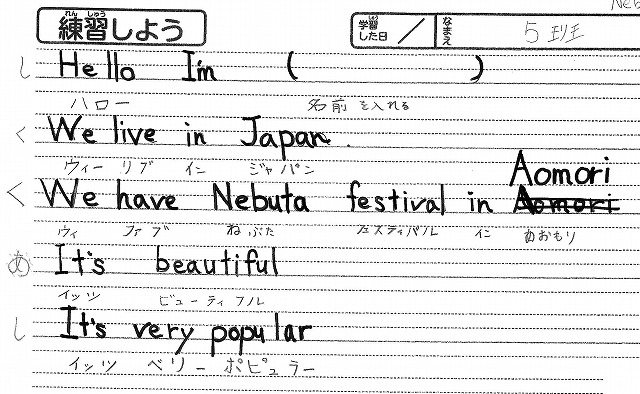 練習しよう
学習した日 / なまえ 5班
し Hello I'm ( )
ハロー 名前を入れる
く We live in Japan.
ウィー リブ イン ジャパン
Aomori
く We have Nebuta festival in Aomori
ウィ ファブ ねぶた フェスティバル イン あおもり
あ It's beautiful
イッツ ビューティフル
し It's very popular
イッツ ベリー ポピュラー